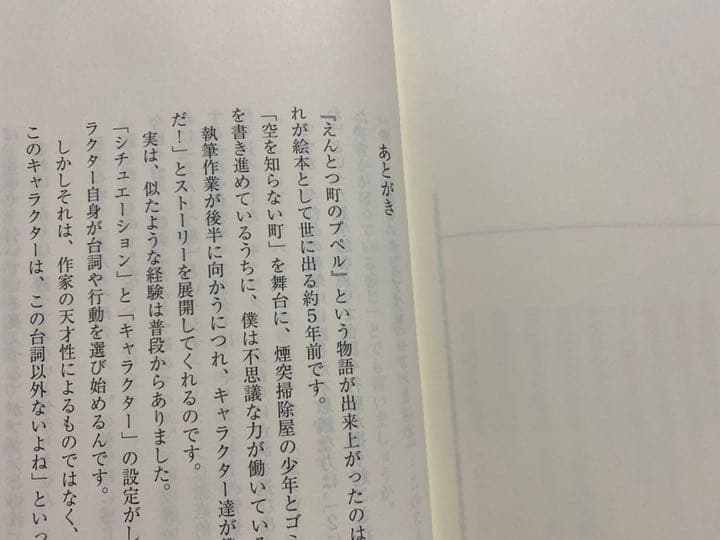 あとがき
『えんとつ町のプペル』という物語が出来上がったのは
れが絵本として世に出る約5年前です。
「空を知らない町」を舞台に、煙突掃除屋の少年とゴミ
を書き進めているうちに、僕は不思議な力が働いている
執筆作業が後半に向かうにつれ、キャラクター達が
だ!」とストーリーを展開してくれるのです。
実は、似たような経験は普段からありました。
「シチュエーション」と「キャラクター」の設定がし
ラクター自身が台詞や行動を選び始めるんです。
しかしそれは、作家の天才性によるものではなく、
このキャラクターは、この台詞以外ないよね」といっ